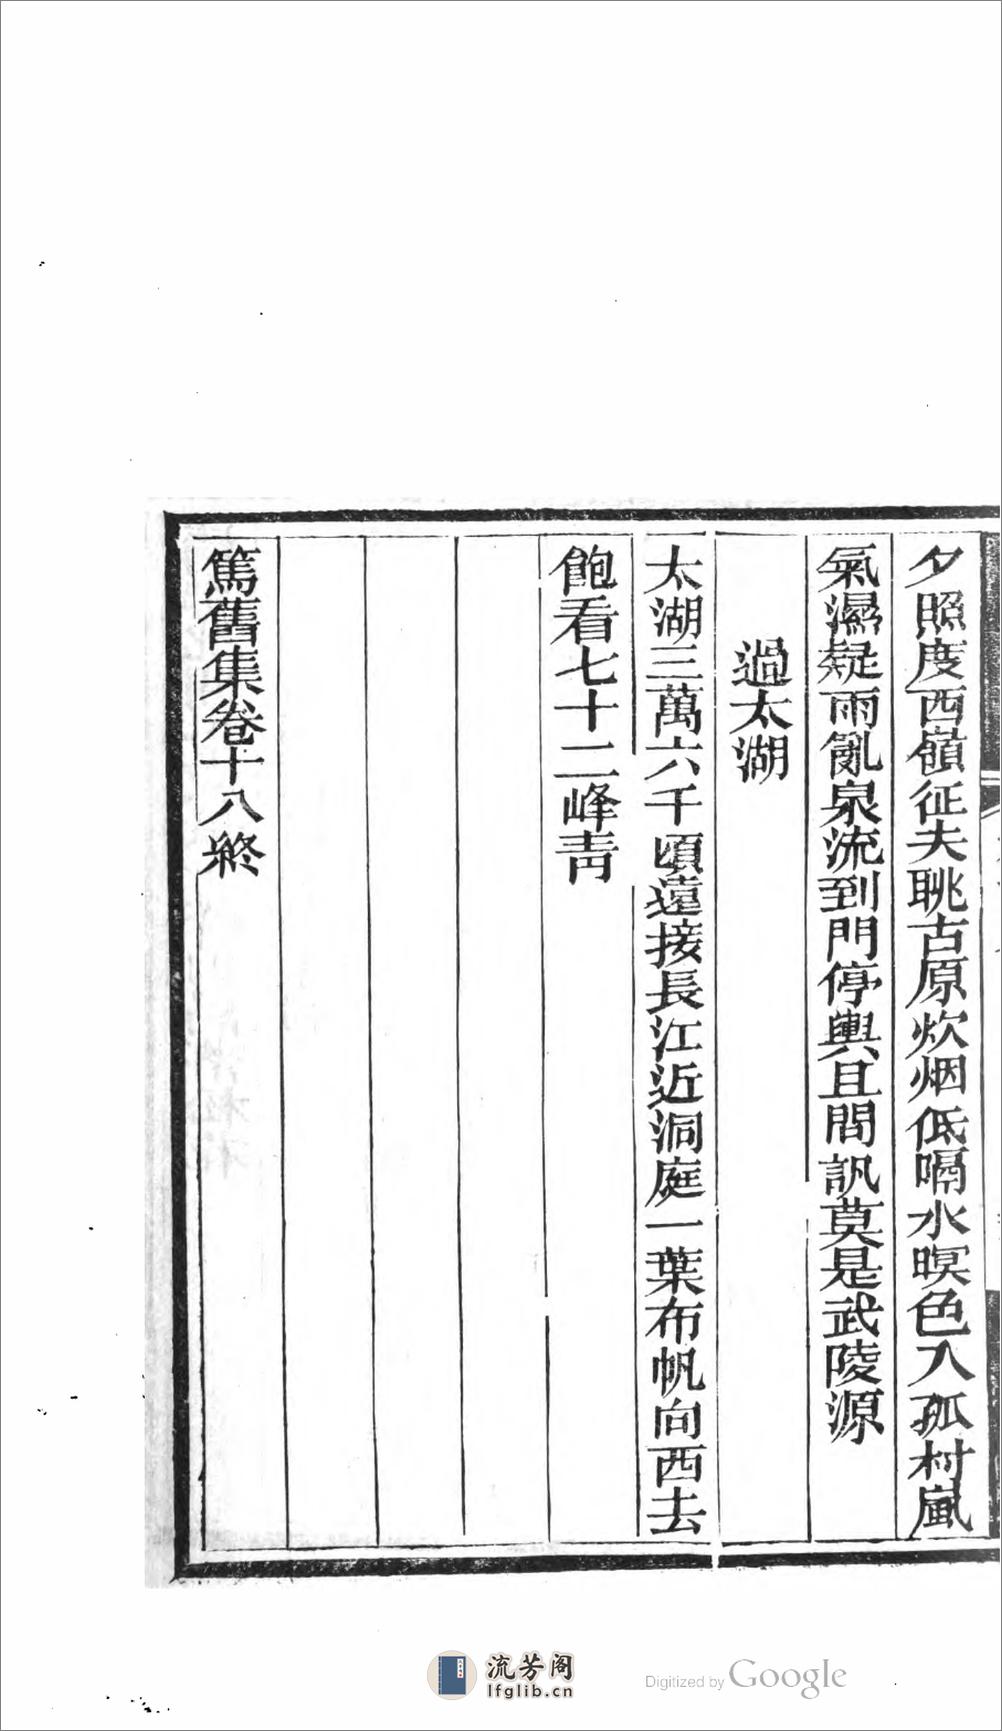 夕照度西嶺征夫眺古原炊烟低隔水暝色入孤村嵐
氣濕疑雨亂泉流到門停輿且問訊莫是武陵源
過太湖
太湖三萬六千頃遠接長江近洞庭一葉布帆向西去
飽看七十二峰靑
篤舊集卷十八終
流芳阁
lfglib.cn
Digitized by Google